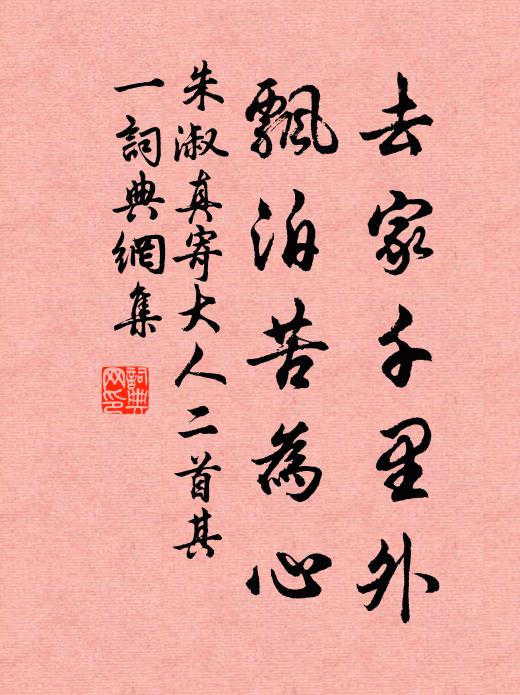 去家千里外
飄泊苦為心
朱淑真寄大人二首其
一詞典網集
詞典
网印